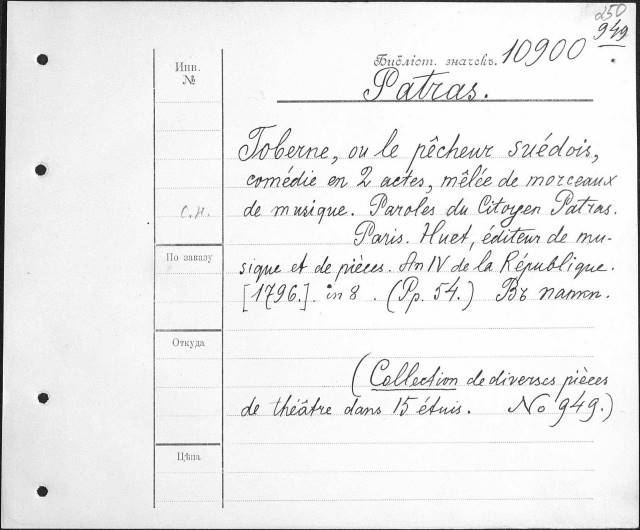 250
949
Инв.
№
Библіот. значекъ. 10900
Patras.
Toberne, ou le pêcheur suédois,
comédie en 2 actes, mêlée de morceaux
de musique. Paroles du Citoyen Patras.
Paris. Huet, éditeur de mu-
sique et de pièces. An IV de la République.
[1796.]. in 8. (Pp. 54.) Въ папкѣ.
С.н.
По заказу
Откуда
(Collection de diverses pièces
de théâtre dans 15 étuis. No 949.)
Цѣна